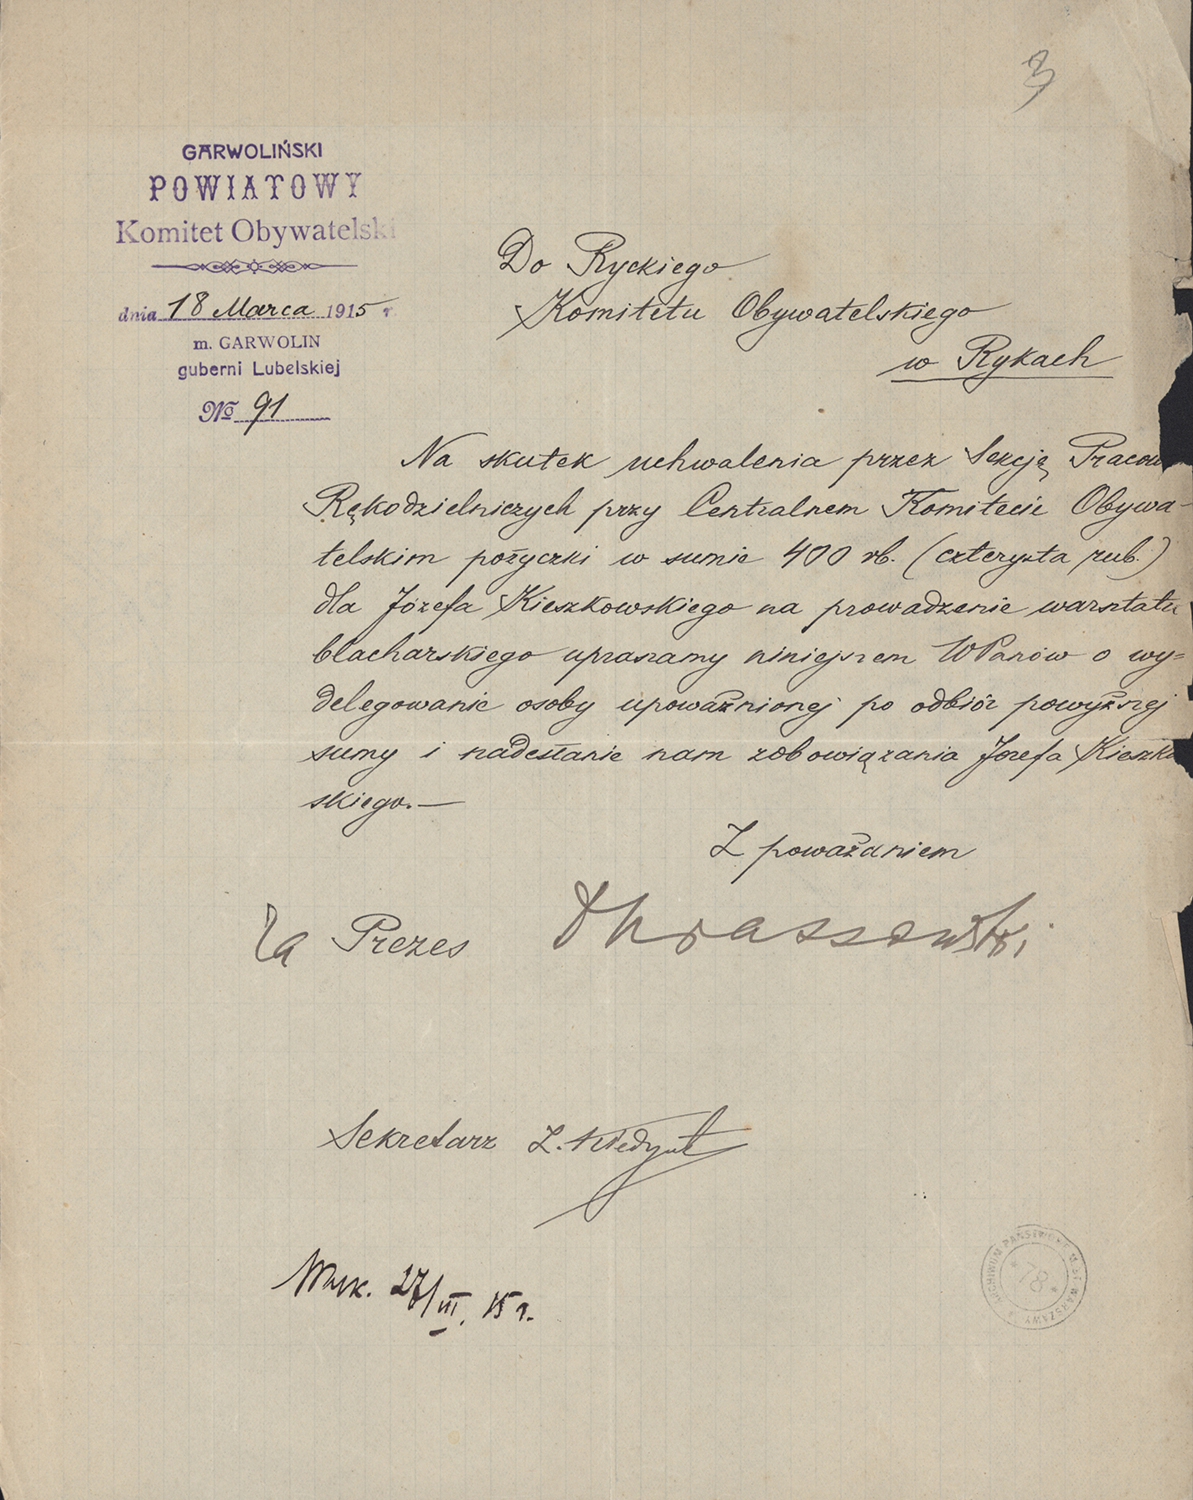 3
GARWOLIŃSKI
POWIATOWY
Komitet Obywatelski
dnia 18 Marca 1915 r.
m. GARWOLIN
guberni Lubelskiej
№ 91
Do Ryckiego
Komitetu Obywatelskiego
w Rykach
Na skutek uchwalenia przez Sekcję Pracow
Rękodzielniczych przy Centralnem Komitecie Obywa-
telskim pożyczki w sumie 400 rb. (czterysta rub.)
dla Józefa Kieszkowskiego na prowadzenie warsztatu
blacharskiego upraszamy niniejszem WPanów o wy=
delegowanie osoby upoważnionej po odbiór powyższej
sumy i nadesłanie nam zobowiązania Józefa Kieszko
skiego.—
Z poważaniem
Za Prezes
Sekretarz Z.
27/III. 15 r.
ARCHIWUM PAŃSTWOWE M.ST. WARSZAWY
78